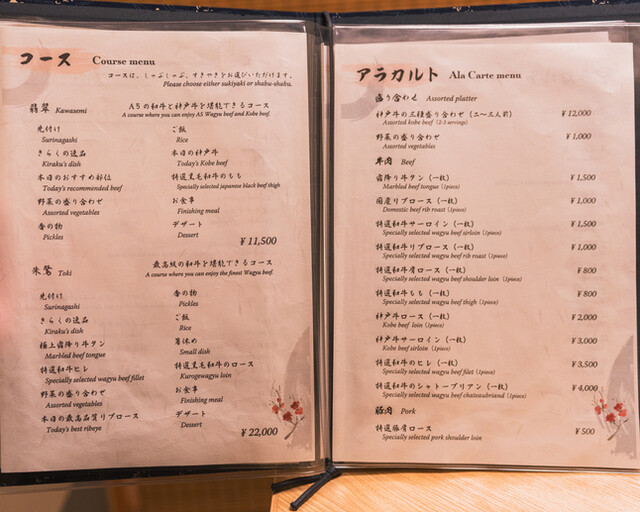 コース Course menu
コースは、しゃぶしゃぶ、すきやきをお選びいただけます。
Please choose either sukiyaki or shabu-shabu.
翡翠 Kawasemi
A5の和牛と神戸牛を堪能できるコース
A course where you can enjoy A5 Wagyu beef and Kobe beef.
先付け
Surinagashi
きらくの逸品
Kiraku's dish
本日のおすすめ部位
Today's recommended beef
野菜の盛り合わせ
Assorted vegetables
香の物
Pickles
ご飯
Rice
本日の神戸牛
Today's Kobe beef
特選黒毛和牛もも
Specially selected japanese black beef thigh
お食事
Finishing meal
デザート
Dessert
¥11,500
朱鷺 Toki
最高級の和牛を堪能できるコース
A course where you can enjoy the finest Wagyu beef.
先付け
Surinagashi
きらくの逸品
Kiraku's dish
極上霜降り牛タン
Marbled beef tongue
特選和牛ヒレ
Specially selected wagyu beef fillet
野菜の盛り合わせ
Assorted vegetables
本日の最高品質リブロース
Today's best ribeye
香の物
Pickles
ご飯
Rice
箸休め
Small dish
特選黒毛和牛のロース
Kurogewagyu loin
お食事
Finishing meal
デザート
Dessert
¥22,000
アラカルト Ala Carte menu
盛り合わせ Assorted platter
神戸牛の三種盛り合わせ（二〜三人前） ¥12,000
Assorted kobe beef (2-3 servings)
野菜の盛り合わせ ¥1,000
Assorted vegetables
牛肉 Beef
霜降り牛タン（一枚） ¥1,500
Marbled beef tongue (1piece)
国産リブロース（一枚） ¥1,000
Domestic beef rib roast (1piece)
特選和牛サーロイン（一枚） ¥1,500
Specially selected wagyu beef sirloin (1piece)
特選和牛リブロース（一枚） ¥1,000
Specially selected wagyu beef rib roast (1piece)
特選和牛肩ロース（一枚） ¥800
Specially selected wagyu beef shoulder loin (1piece)
特選和牛もも（一枚） ¥800
Specially selected wagyu beef thigh (1piece)
神戸牛ロース（一枚） ¥2,000
Kobe beef loin (1piece)
神戸牛サーロイン（一枚） ¥3,000
Kobe beef sirloin (1piece)
特選和牛のヒレ（一枚） ¥3,500
Specially selected wagyu beef filet (1piece)
特選和牛のシャトーブリアン（一枚） ¥4,000
Specially selected wagyu beef chateaubriand (1piece)
豚肉 Pork
特選豚肩ロース ¥500
Specially selected pork shoulder loin